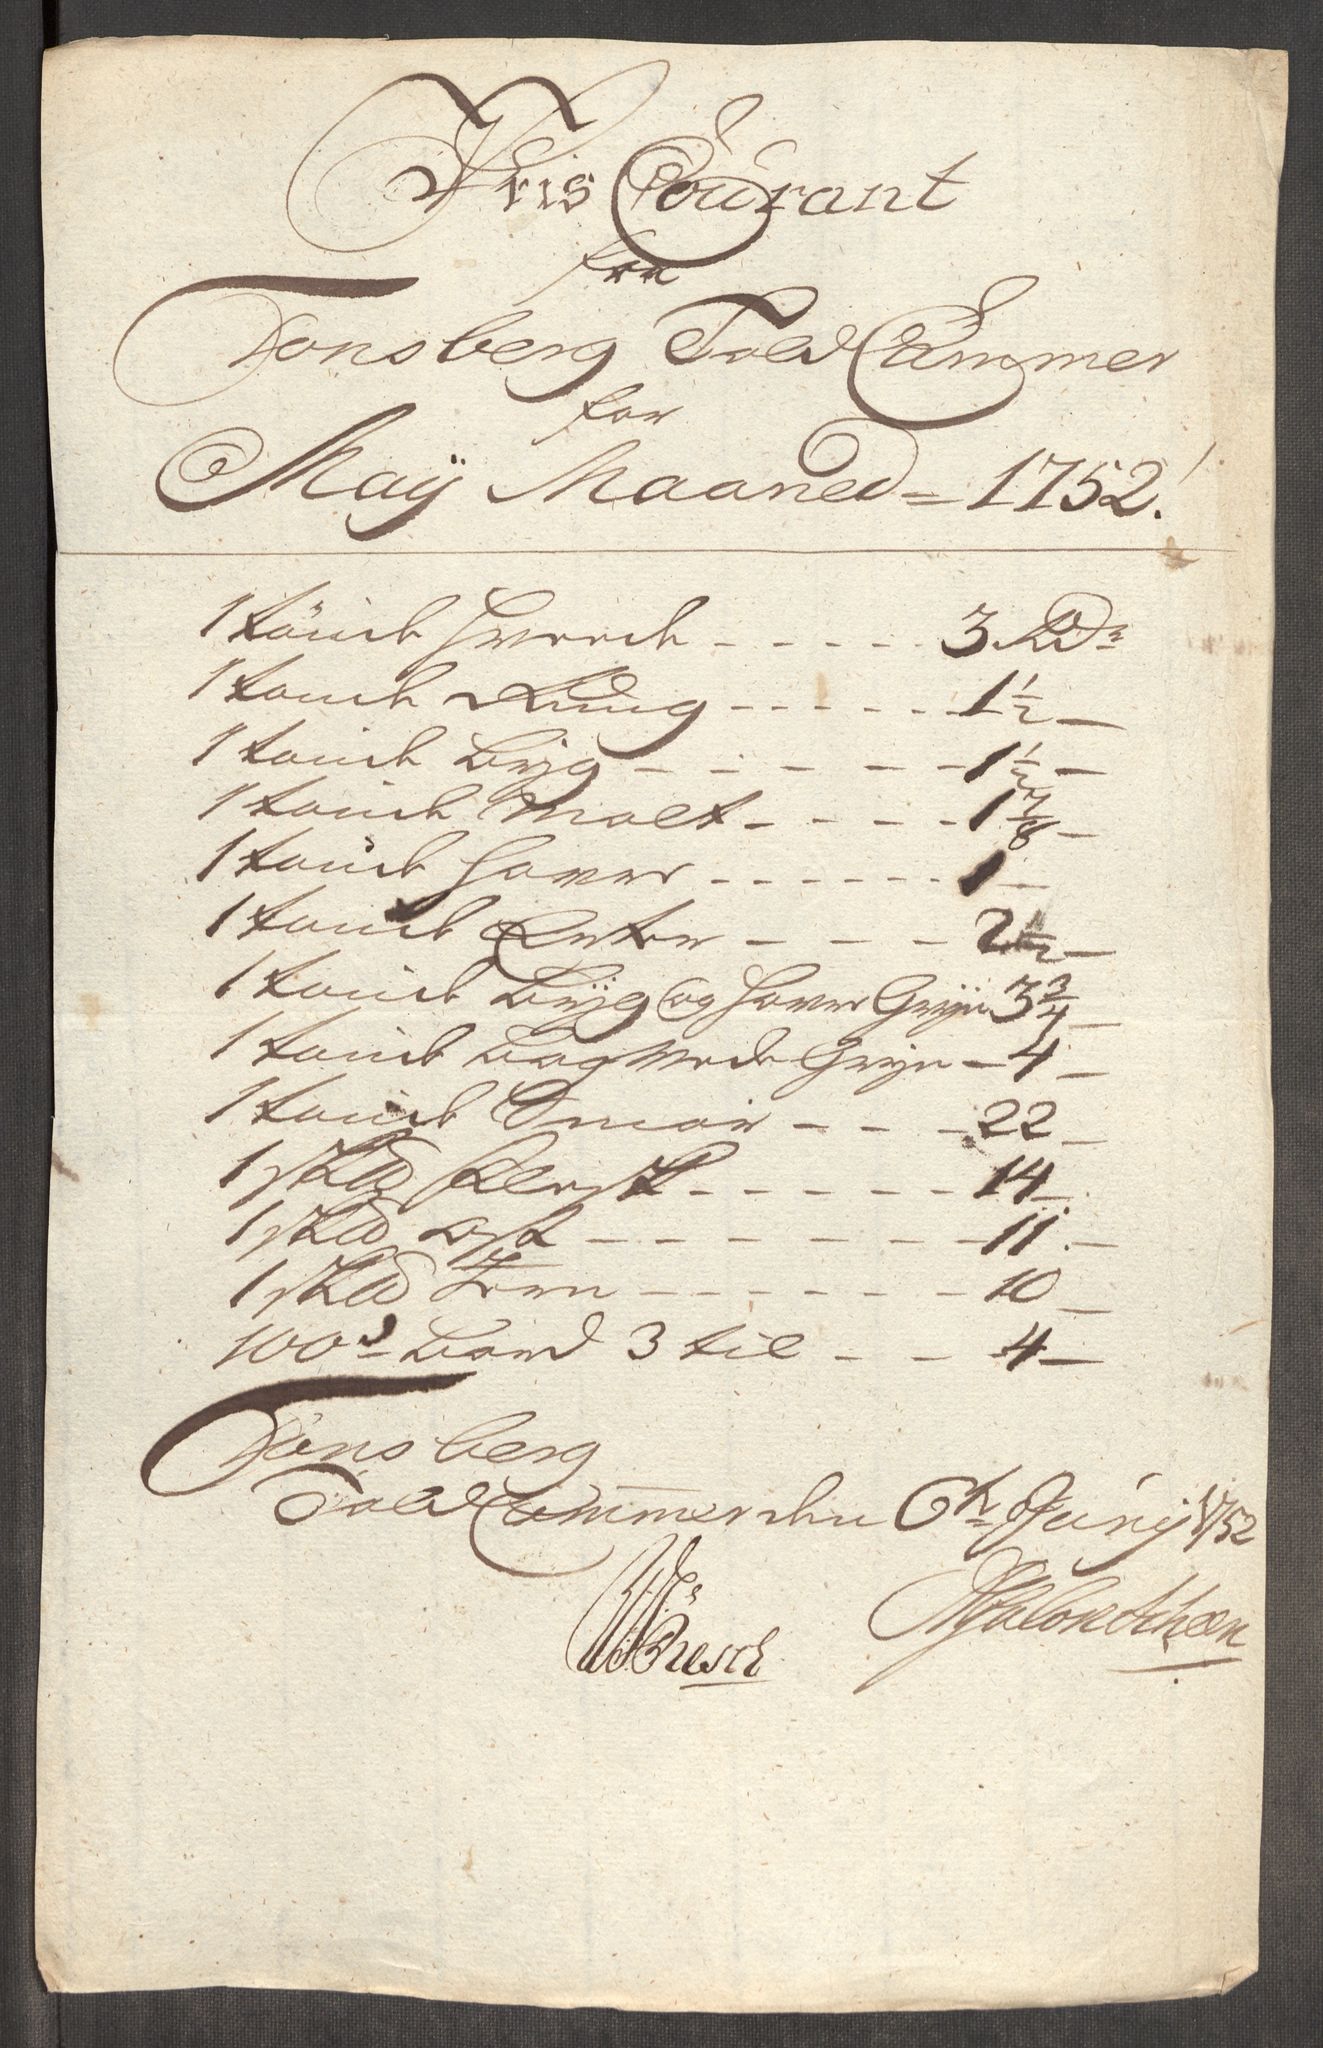 Pris Courant
fra
Tonsberg Told Cammer
for
Maÿ Maaned = 1752.
1 tönde Hvede - - - - - 3 Rdr
1 tonde Rug - - - - - - 1 1/2 -
1 tonde Byg - - - - - - 1 1/2 -
1 tonde Malt - - - - - 1 7/8 -
1 tonde Haver - - - - - - 1 -
1 tonde Erter - - - - 2 1/2 -
1 tonde Bÿg og Haver Grÿn 3 3/4 -
1 tonde Boghvede Gryn - 4 -
1 tonde Smör - - - 22 -
1 sk℔ Flesk - - - - - 14 -
1 sk℔ Ost - - - - - - 11 -
1 sk℔ Jern - - - - - - 10 -
100d Bord 3 til - - - 4 -
Tönsberg
Told Cammer den 6te Junij 1752
Resch